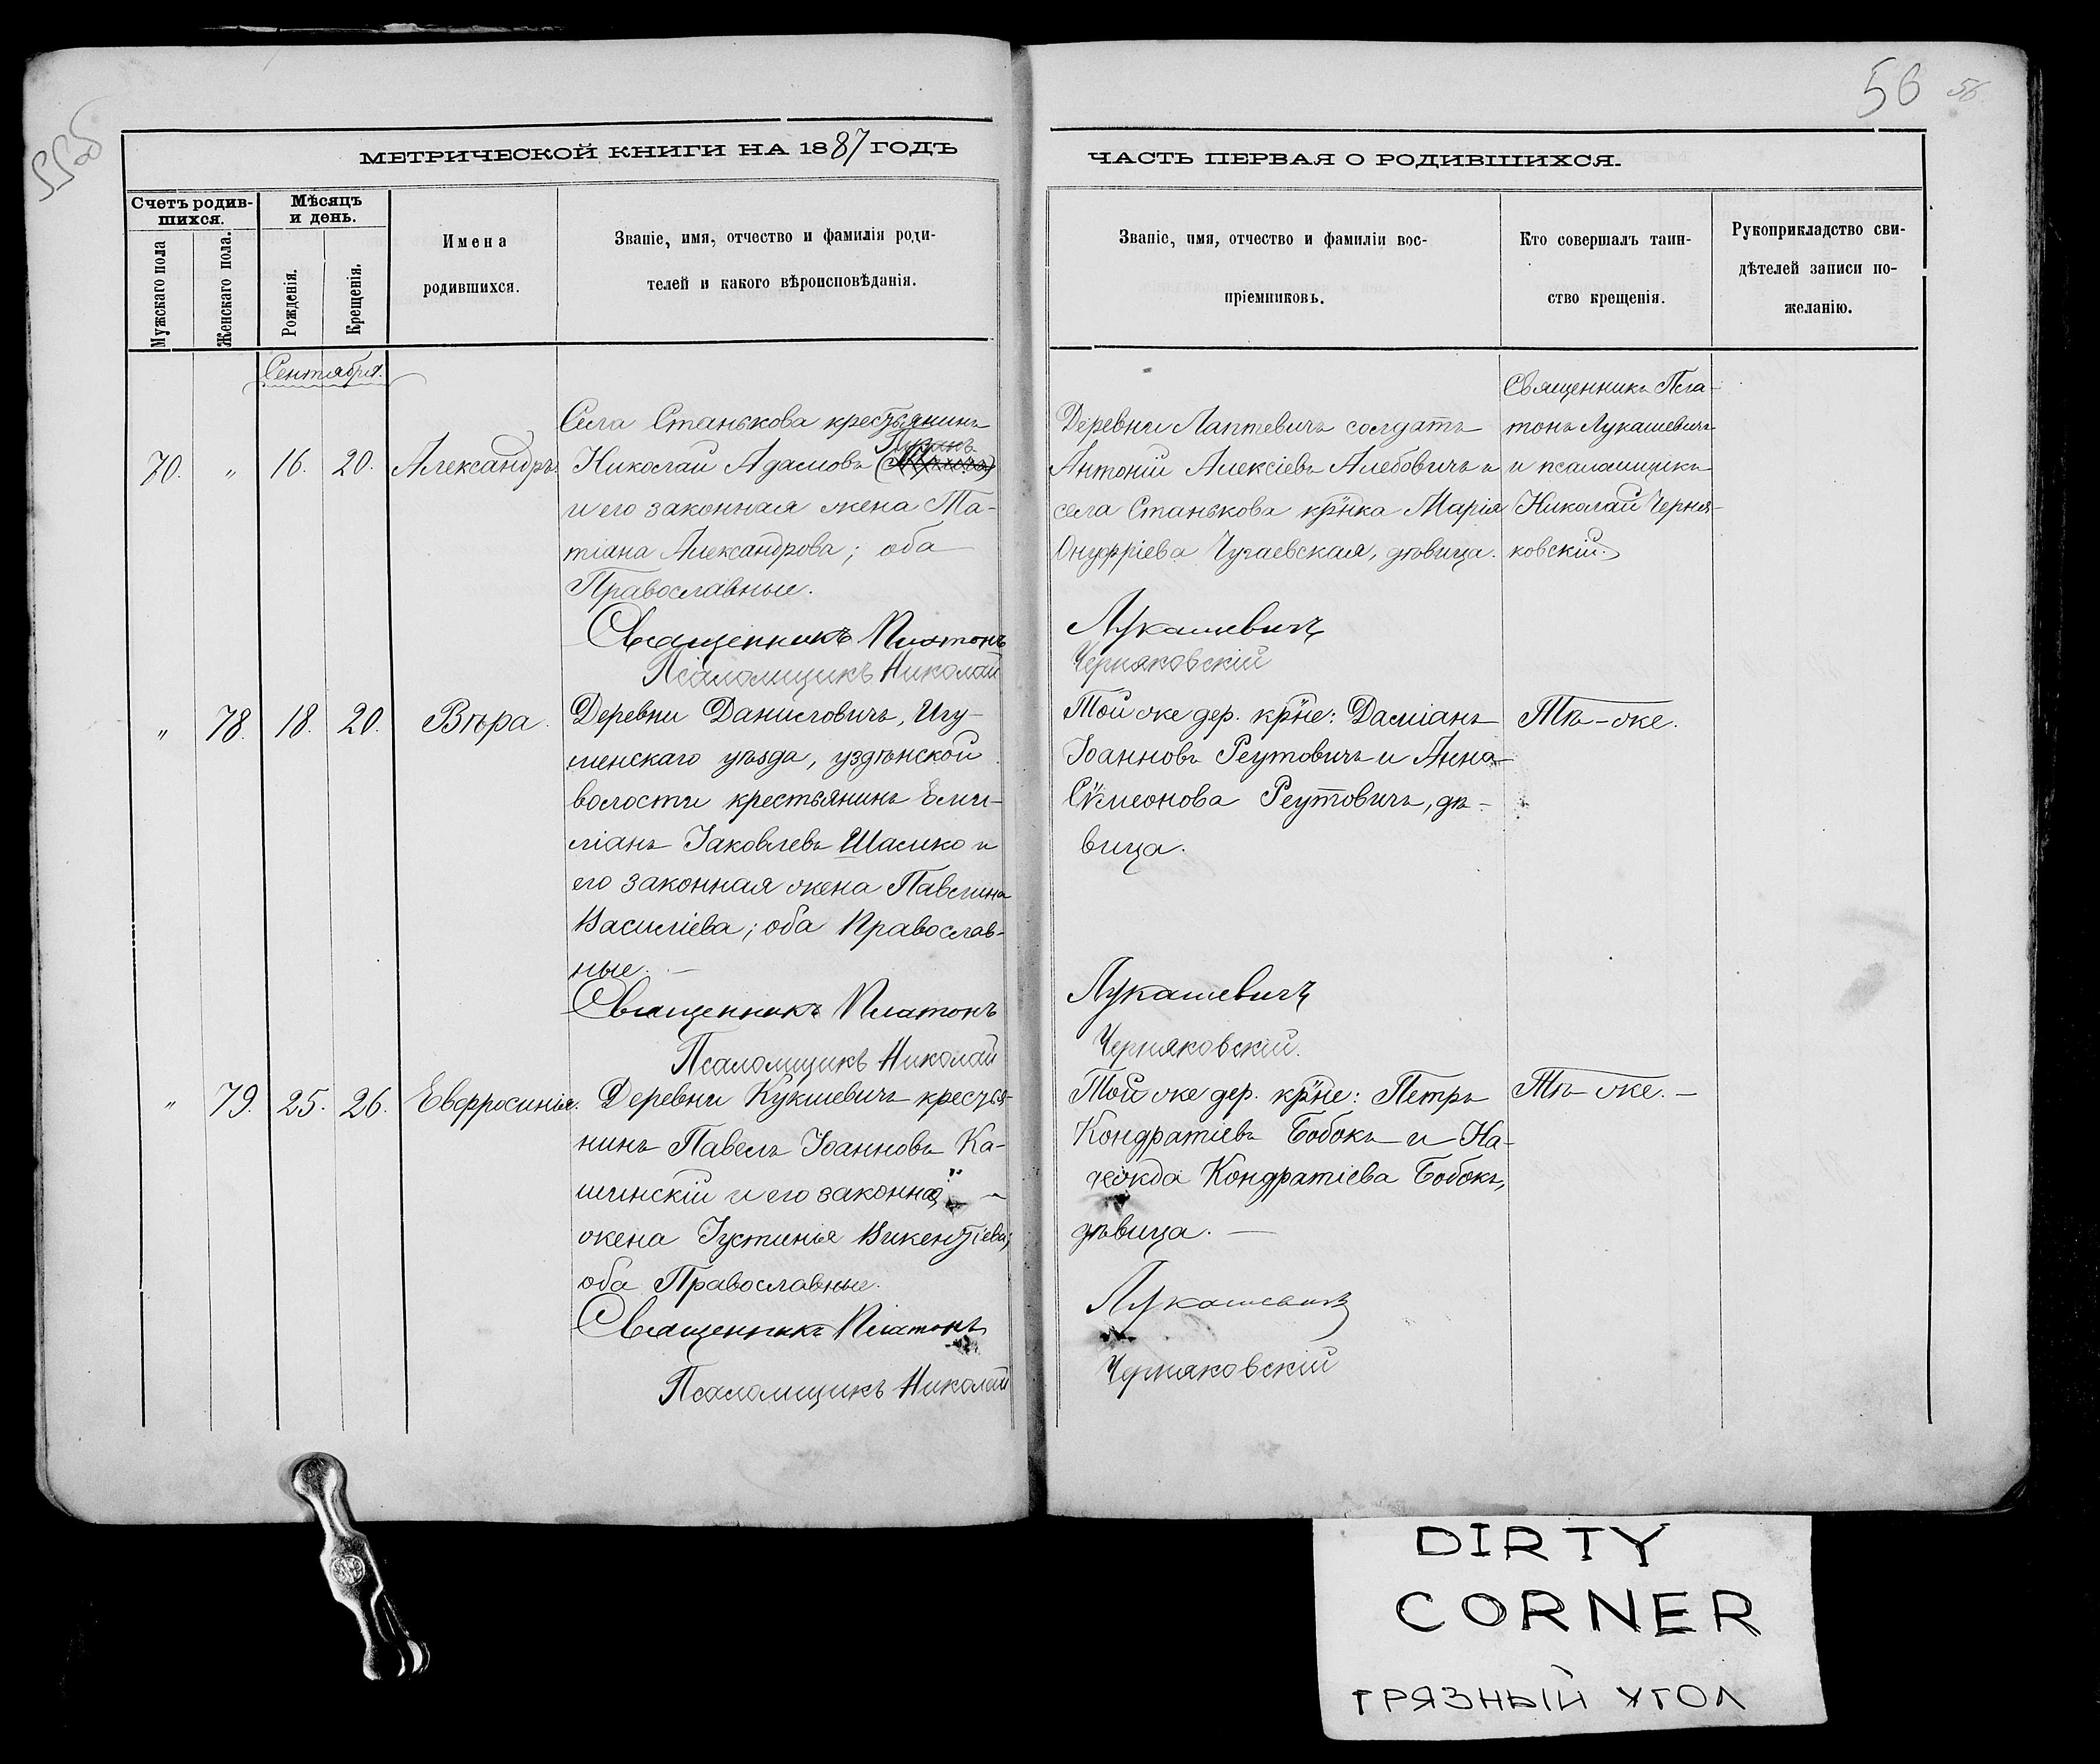 55об
56
56
МЕТРИЧЕСКОЙ КНИГИ НА 1887 ГОДЪ
ЧАСТЬ ПЕРВАЯ О РОДИВШИХСЯ.
Счетъ родив-
шихся.
Мужскаго пола
Женскаго пола.
Мѣсяцъ
и день.
Рожденія.
Крещенія.
Имена
родившихся.
Званіе, имя, отчество и фамилія роди-
телей и какого вѣроисповѣданія.
Званіе, имя, отчество и фамиліи вос-
пріемниковъ.
Кто совершалъ таин-
ство крещенія.
Рукоприкладство сви-
дѣтелей записи по-
желанію.
Сентября.
70. " 16. 20. Александръ.
Села Станькова крестьянинъ
Николай Адамовъ
и его законная жена Та-
тіана Александрова; оба
Православные.
Священникъ Платонъ
Псаломщикъ Николай
Деревни Лаптевичъ солдатъ
Антоній Алексіевъ Алебовичъ и
села Станькова кр̃нка Марія
Онуфріева Чучаевская, дѣвица.
Лукашевичъ
Черняковскій
Священникъ Пла-
тонъ Лукашевичъ
и псаломщикъ
Николай Черня-
ковскій.
" 78. 18. 20. Вѣра.
Деревни Даниловичъ, Игу-
менскаго уѣзда, уздѣнской
волости крестьянинъ Еми-
ліанъ Іаковлевъ Шамко и
его законная жена Павлина
Василіева; оба Православ-
ные. —
Священникъ Платонъ
Псаломщикъ Николай
Той же дер. кр̃не: Даміанъ
Іоанновъ Реутовичъ и Анна
Сѵмеонова Реутовичъ, дѣ-
вица.
Лукашевичъ
Черняковскій.
Тѣ-же.
" 79. 25. 26. Евфросинія.
Деревни Кукшевичъ крестья-
нинъ Павелъ Іоанновъ Ка-
шинскій и его законная
жена Іустинья Викентіева;
оба Православные.
Священникъ Платонъ
Псаломщикъ Николай
Той же дер. кр̃не: Петръ
Кондратіевъ Бобокъ и На-
дежда Кондратіева Бобокъ,
дѣвица. —
Лукашевичъ
Черняковскій
Тѣ-же. —
DIRTY
CORNER
ГРЯЗНЫЙ УГОЛ